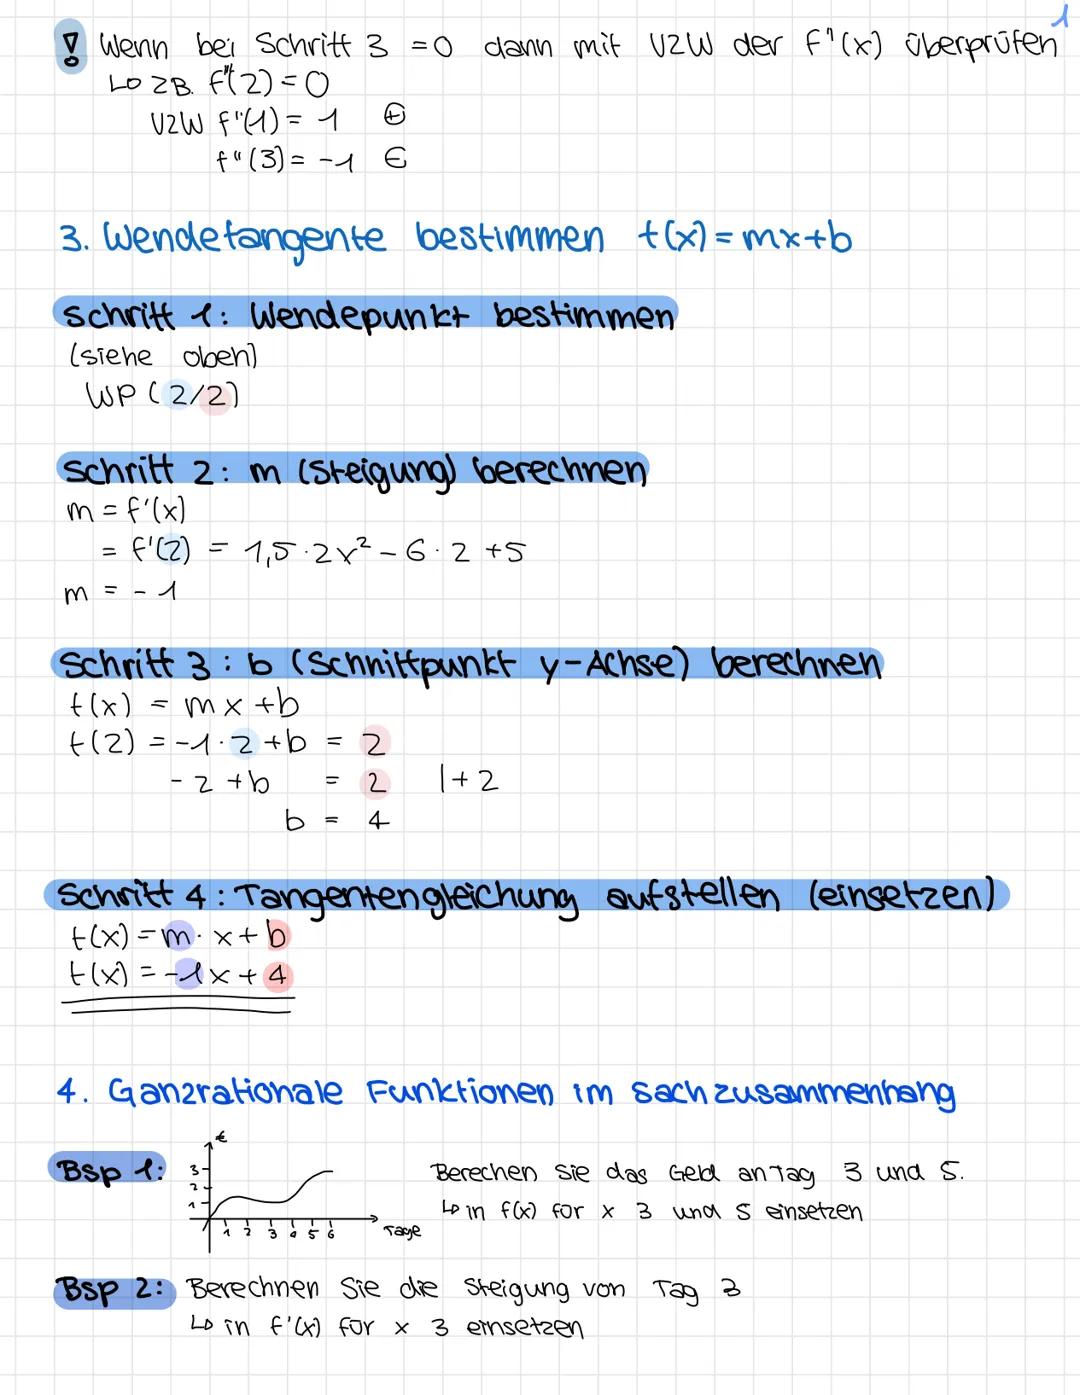 1
! Wenn bei Schritt 3 =0 dann mit VZW der f"(x) überprüfen
↳ ZB. f"(2)=0
VZW f"(1)= 1 ⊕
f"(3)= -1 ⊖
3. Wendetangente bestimmen t(x)=mx+b
Schritt 1: Wendepunkt bestimmen
(siehe oben)
WP (2/2)
Schritt 2: m (Steigung) berechnen
m = f'(x)
= f'(2) = 1,5·2x² - 6·2 +5
m = -1
Schritt 3: b (Schnittpunkt y-Achse) berechnen
t(x) = mx +b
t(2) = -1·2 +b = 2
-2 +b = 2 |+2
b = 4
Schritt 4: Tangentengleichung aufstellen (einsetzen)
t(x) = m· x + b
t(x) = -1x + 4
4. Ganzrationale Funktionen im Sachzusammenhang
Bsp 1:
€
3
2
1
1 2 3 4 5 6
Tage
Berechen Sie das Geld an Tag 3 und 5.
↳ in f(x) für x 3 und 5 einsetzen
Bsp 2: Berechnen Sie die Steigung von Tag 3
↳ in f'(x) für x 3 einsetzen